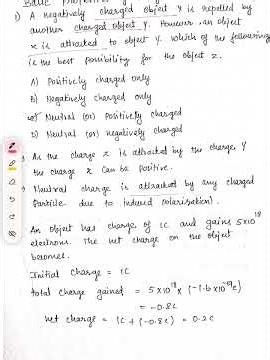 Basic Properties
1) A negatively charged object X is repelled by
another charged object Y. However, an object
Z is attracted to object Y. Which of the following
is the best possibility for the object Z.
A) Positively charged only
B) Negatively charged only
Neutral (or) Positively charged
D) Neutral (or) negatively charged
As the charge Z is attracted by the charge Y
the charge Z can be positive.
Neutral charge is attracted by any charged
particle due to induced polarisation).
An object has charge of 1C and gains 5×10¹⁸
electrons. The net charge on the object
becomes.
Initial charge = 1C
total charge gained = 5×10¹⁸ × (-1.6×10⁻¹⁹C)
= -0.8C
Net charge = 1C + (-0.8C) = 0.2C